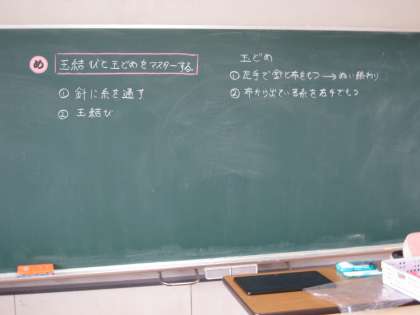 め 玉結びと玉どめをマスターする。
① 針に糸を通す
② 玉結び
玉どめ
① 左手で針と布をもつ → ぬい終わり
② 布から出ている糸を右手でもつ